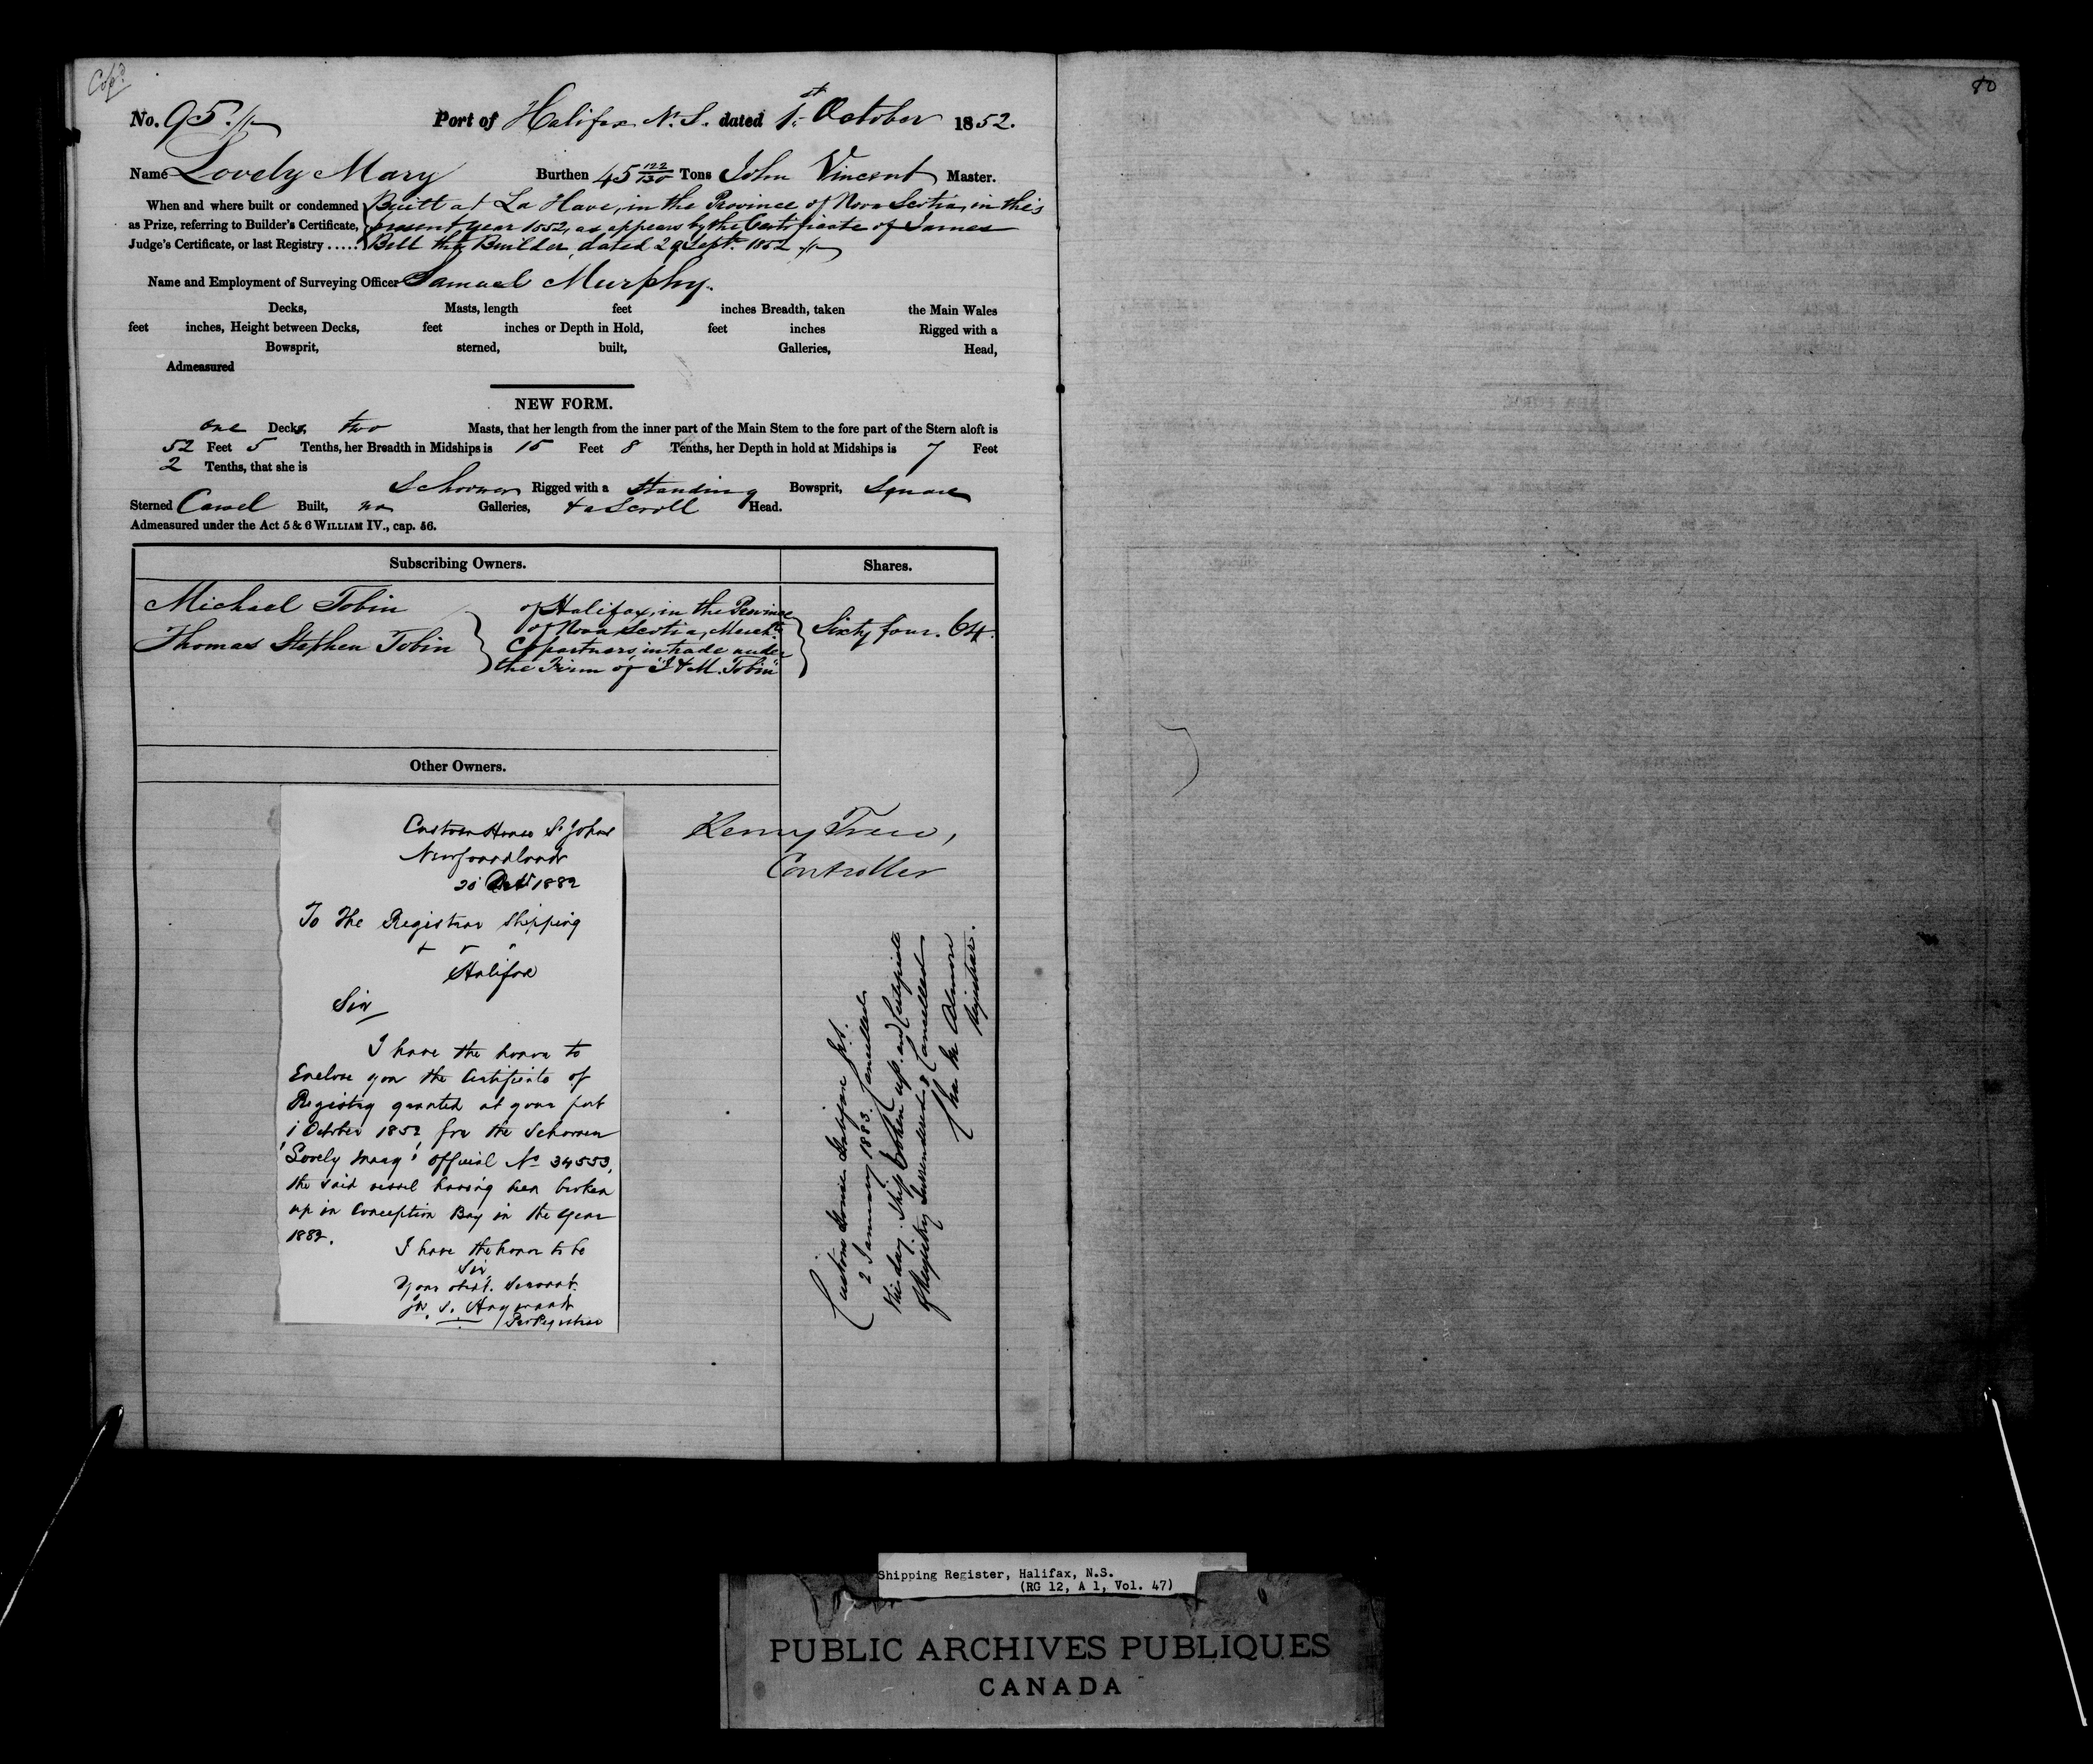 Cop'd
80
No. 95. Port of Halifax N. S. dated 1st October 1852.
Name Lovely Mary Burthen 45 122/130 Tons John Vincent Master.
When and where built or condemned as Prize, referring to Builder's Certificate, Judge's Certificate, or last Registry .....
Built at La Have, in the Province of Nova Scotia, in this
present year 1852, as appears by the Certificate of James
Bell the Builder, dated 29 Sept. 1852
Name and Employment of Surveying Officer Samuel Murphy.
Decks, Masts, length feet inches Breadth, taken the Main Wales
feet inches, Height between Decks, feet inches or Depth in Hold, feet inches Rigged with a
Bowsprit, sterned, built, Galleries, Head,
Admeasured
NEW FORM.
one Decks, two Masts, that her length from the inner part of the Main Stem to the fore part of the Stern aloft is
52 Feet 5 Tenths, her Breadth in Midships is 15 Feet 8 Tenths, her Depth in hold at Midships is 7 Feet
2 Tenths, that she is
Schooner Rigged with a standing Bowsprit, Square
Sterned Carvel Built, no Galleries, & a Scroll Head.
Admeasured under the Act 5 & 6 WILLIAM IV., cap. 56.
Subscribing Owners. Shares.
Michael Tobin
Thomas Stephen Tobin
of Halifax, in the Province
of Nova Scotia, Mercht.
Copartners in trade under
the Firm of "J & M. Tobin"
Sixty four. 64.
Other Owners.
Custom House St Johns
Newfoundland
1882
To The Registrar Shipping
Halifax
Sir
I have the honor to
Enclose you the Certificate of
Registry granted at your port
1 October 1852 for the Schooner
'Lovely Mary' Official No 34553,
the said vessel having been broken
up in Conception Bay in the year
1882.
I have the honor to be
Sir
Your obdt. Servant
Controller
Custom House Halifax N.S.
2 January 1883. Cancelled
this day. Ship broken up and Certificate
of Registry Surrendered & Cancelled
Almon
Registrar.
Shipping Register, Halifax, N.S.
(RG 12, A 1, Vol. 47)
PUBLIC ARCHIVES PUBLIQUES
CANADA